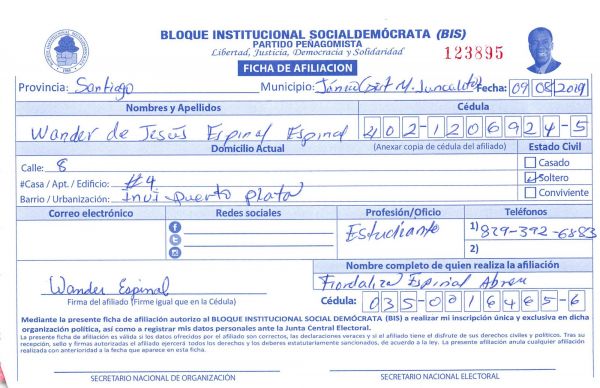 BLOQUE INSTITUCIONAL SOCIALDEMÓCRATA (BIS)
PARTIDO PEÑAGOMISTA
Libertad, Justicia, Democracia y Solidaridad
123895
FICHA DE AFILIACION
Provincia: Santiago Municipio: Jánico Fecha: 09 08 2019
Nombres y Apellidos Cédula
Wander de Jesús Espinal Espinal 402-1206924-5
Domicilio Actual (Anexar copia de cédula del afiliado) Estado Civil
Calle: 8 Casado
#Casa / Apt. / Edificio: #4 Soltero
Barrio / Urbanización: Invi-puerto plata Conviviente
Correo electrónico Redes sociales Profesión/Oficio Teléfonos
Estudiante 1) 829-392-6883
2)
Nombre completo de quien realiza la afiliación
Wander Espinal Espinal Abreu
Firma del afiliado (Firme igual que en la Cédula) Cédula: 035-0016465-6
Mediante la presente ficha de afiliación autorizo al BLOQUE INSTITUCIONAL SOCIAL DEMÓCRATA (BIS) a realizar mi inscripción única y exclusiva en dicha
organización política, así como a registrar mis datos personales ante la Junta Central Electoral.
La presente ficha de afiliación es válida si los datos ofrecidos por el afiliado son correctos, las declaraciones veraces y si el afiliado tiene el disfrute de sus derechos civiles y políticos. Tras su
recepción, sello y firmas autorizadas el afiliado ejercerá todos los derechos y los deberes estatutariamente sancionados, de acuerdo a la ley. La presente afiliación anula cualquier afiliación
realizada con anterioridad a la fecha que aparece en esta ficha.
SECRETARIO NACIONAL DE ORGANIZACIÓN SECRETARIO NACIONAL ELECTORAL